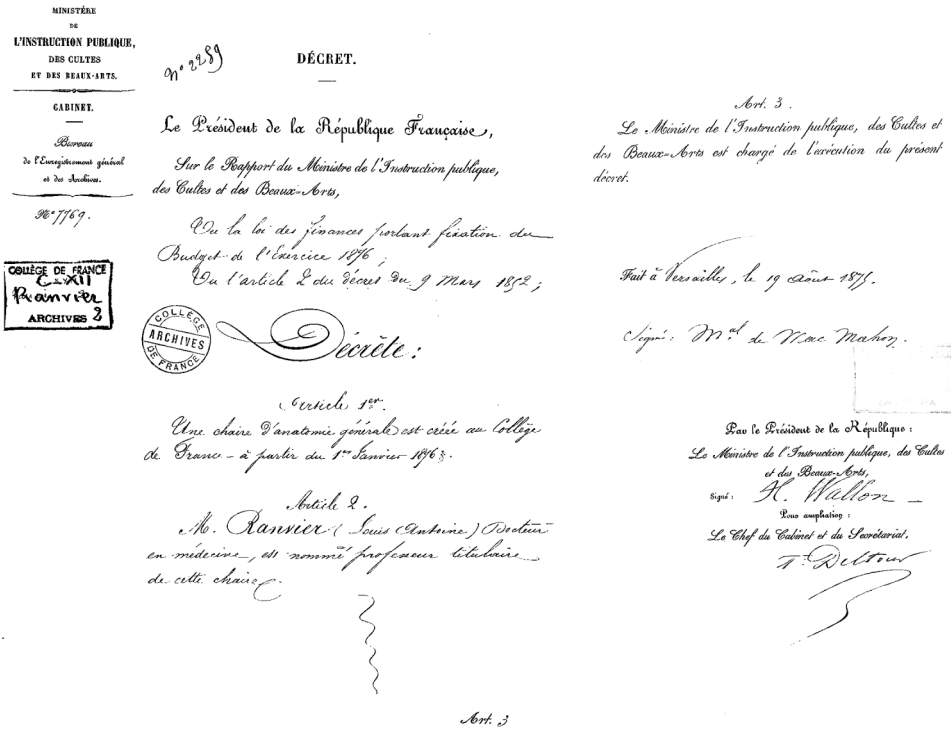 MINISTÈRE
DE
L'INSTRUCTION PUBLIQUE,
DES CULTES
ET DES BEAUX-ARTS.
CABINET.
Bureau
de l'Enregistrement général
et des Archives.
N° 7769.
COLLÈGE DE FRANCE
C-XII
Ranvier
ARCHIVES 2
N° 2289
DÉCRET.
Le Président de la République Française,
Sur le Rapport du Ministre de l'Instruction publique,
des Cultes et des Beaux-Arts,
Vu la loi des finances portant fixation du
Budget de l'Exercice 1876 ;
Vu l'article 2 du décret du 9 Mars 1852 ;
COLLÈGE
ARCHIVES
DE FRANCE
Décrète :
Article 1er.
Une chaire d'anatomie générale est créée au Collège
de France – à partir du 1er Janvier 1876.
Article 2.
M. Ranvier (Louis Antoine) Docteur
en médecine, est nommé professeur titulaire
de cette chaire.
Art. 3
Art. 3.
Le Ministre de l'Instruction publique, des Cultes et
des Beaux-Arts est chargé de l'exécution du présent
décret.
Fait à Versailles, le 19 Août 1875.
Signé : Mal de Mac Mahon.
Par le Président de la République :
Le Ministre de l'Instruction publique, des Cultes
et des Beaux-Arts,
Signé : H. Wallon
Pour ampliation :
Le Chef du Cabinet et du Secrétariat,
Deltour